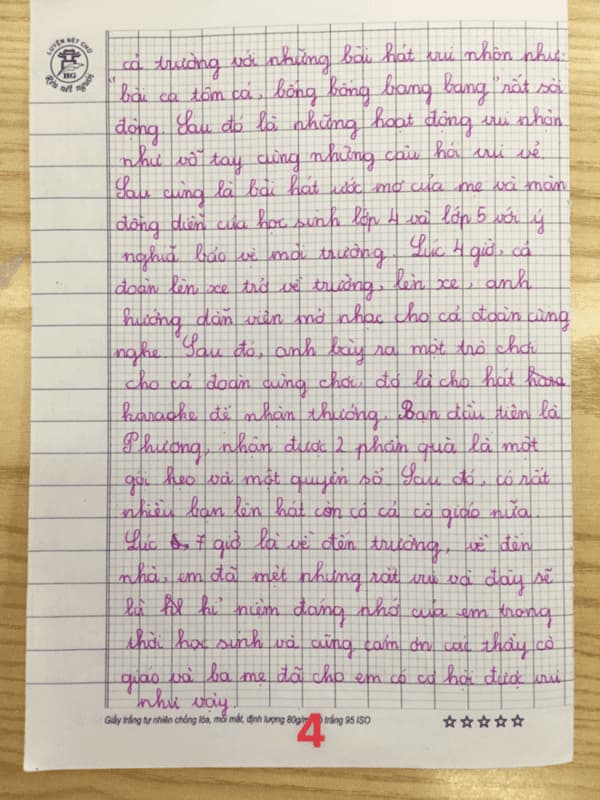 LUYỆN NÉT CHỮ
HG
Rèn nết người
cả trường với những bài hát vui nhộn như:
"bài ca tôm cá, bống bống bang bang" rất sôi
động. Sau đó là những hoạt động vui nhộn
như vỗ tay cùng những câu hỏi vui vẻ.
Sau cùng là bài hát ước mơ của mẹ và màn
đồng diễn của học sinh lớp 4 và lớp 5 với ý
nghĩa bảo vệ môi trường. Lúc 4 giờ, cả
đoàn lên xe trở về trường, lên xe, anh
hướng dẫn viên mở nhạc cho cả đoàn cùng
nghe. Sau đó, anh bày ra một trò chơi
cho cả đoàn cùng chơi, đó là cho hát
karaoke để nhận thưởng. Bạn đầu tiên là
Phương, nhận được 2 phần quà là một
gói kẹo và một quyển sổ. Sau đó, có rất
nhiều bạn lên hát còn có cả cô giáo nữa.
Lúc 7 giờ là về đến trường, về đến
nhà, em đã mệt nhưng rất vui và đây sẽ
là kỉ niệm đáng nhớ của em trong
thời học sinh và cũng cám ơn các thầy cô
giáo và ba mẹ đã cho em có cơ hội được vui
như vậy.
Giấy trắng tự nhiên chống lóa, mỏi mắt, định lượng 80g/m trắng 95 ISO
4